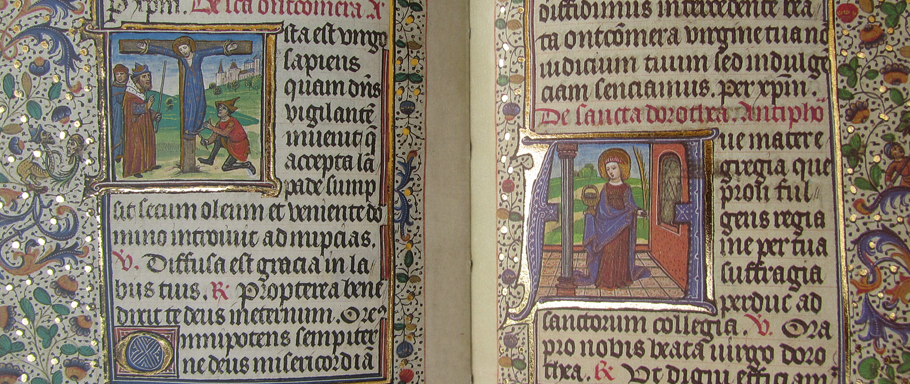 De sca ontcomera. A
Ista est virgo
sapiens
quam dn̄s
vigilante
inuenit q̄
accepta lā
pade sump
sit secum oleum et veniente do
mino introiuit ad nupcias.
V. Diffusa est gracia in la
bijs tuis. R Propterea bene
dixit te deus ineternum. Ore
Omnipotens sempiter
ne deus misericordia
diffidimus intercedente bea
ta ontcōmera virgine tuam
iudicium sed in tuam
ciam senciamus. per xpm̄.
De sancta dorothea. Antipho
ine matre
egregia que
geris regia
me per tua
suffragia
perduc ad
sanctorum collegia. V. Ora
pro nobis beata virgo doro
thea. R Vt digni efficiam